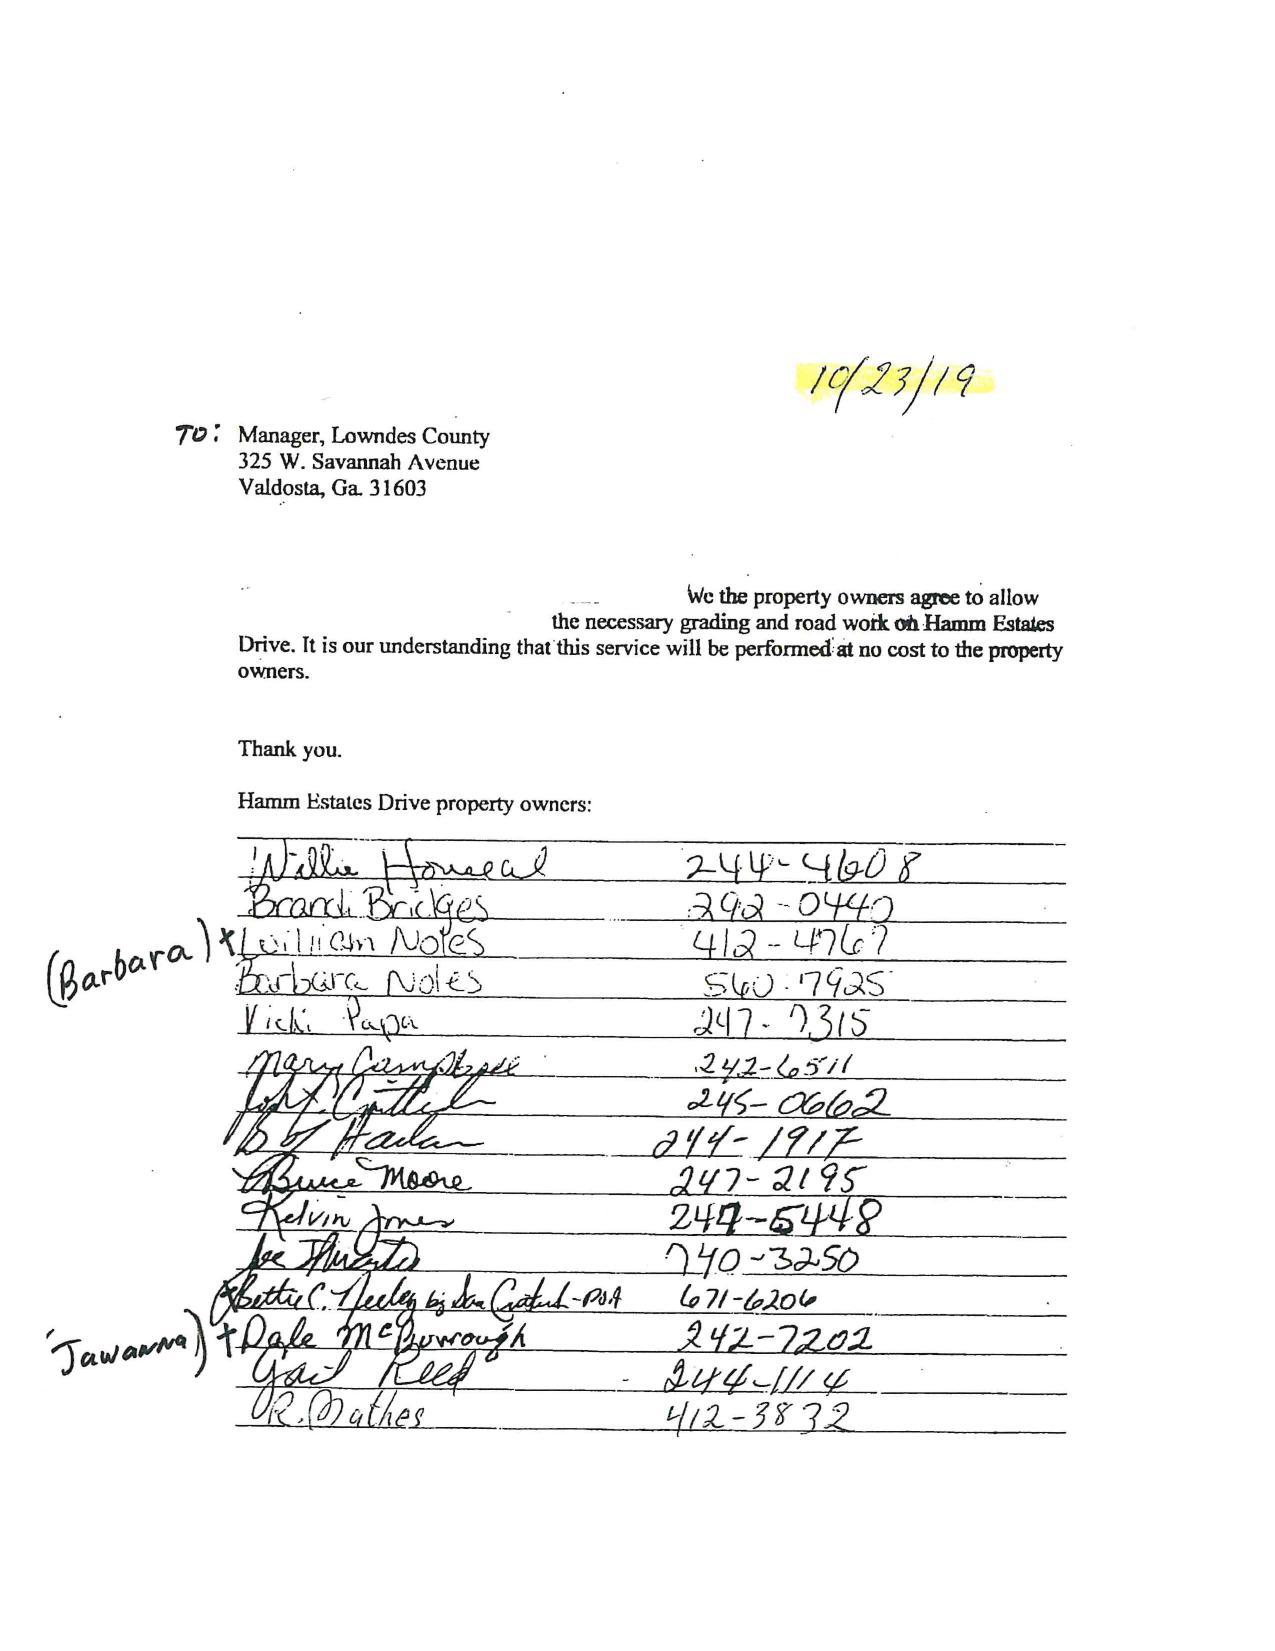 10/23/19
TO: Manager, Lowndes County
325 W. Savannah Avenue
Valdosta, Ga. 31603
We the property owners agree to allow
the necessary grading and road work on Hamm Estates
Drive. It is our understanding that this service will be performed at no cost to the property
owners.
Thank you.
Hamm Estates Drive property owners:
Willie Houseal 244-4608
Brandi Bridges 292-0440
(Barbara) William Notes 412-4767
Barbara Notes 560-7925
Vicki Papa 247-7315
Mary Campbell 242-6511
245-0662
Harlan 244-1917
Bruce Moore 247-2195
Kelvin Jones 247-5448
Joe 740-3250
Bettie C. Neeley by Crawford-POA 671-6206
Jawanna) Dale McBurrough 242-7202
Gail Reed 244-1114
R. Mathes 412-3832